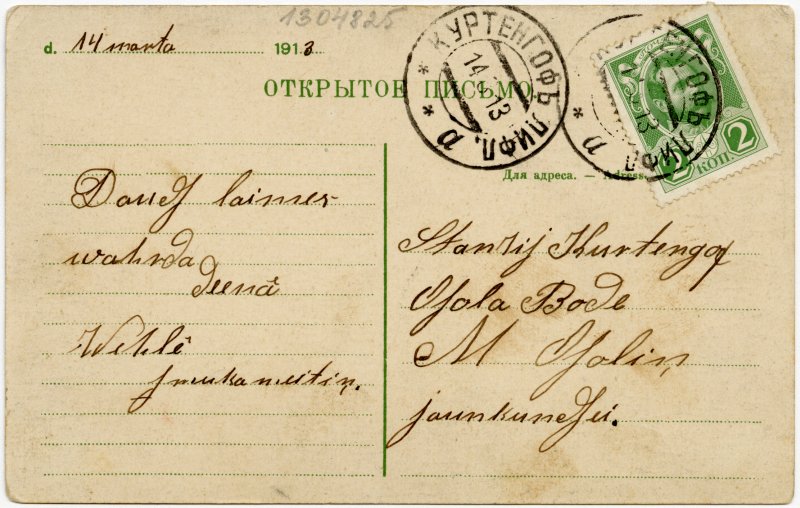 1304825
d. 14 marta 1913
ОТКРЫТОЕ ПИСЬМО.
КУРТЕНГОФЪ ЛИФЛ.
14 13
а
ГОФЪ ЛИФЛ.
13
а
2 2
КОП.
Для адреса. — Adresse
Daudz laimes
wahrda
deenā
Wehlē
smukameitiņ.
Stanzij Kurtengof
Bode
M
jaunkundzei.